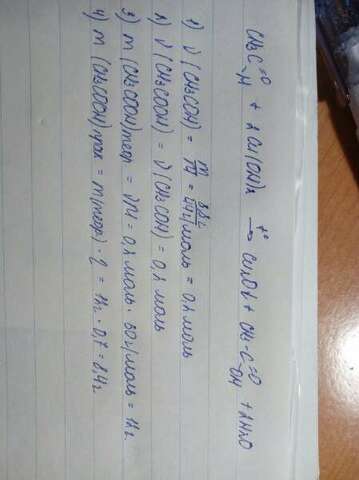 CH3C=O-H + 2Cu(OH)2 t°→ Cu2O↓ + CH3-C=O-OH + 2H2O
1) ν(CH3COH) = m/M = 8,8г/44г/моль = 0,2 моль
2) ν(CH3COOH) = ν(CH3COH) = 0,2 моль
3) m(CH3COOH)теор = νM = 0,2 моль · 60г/моль = 12г
4) m(CH3COOH)прак = m(теор) · η = 12г · 0,7 = 8,4г